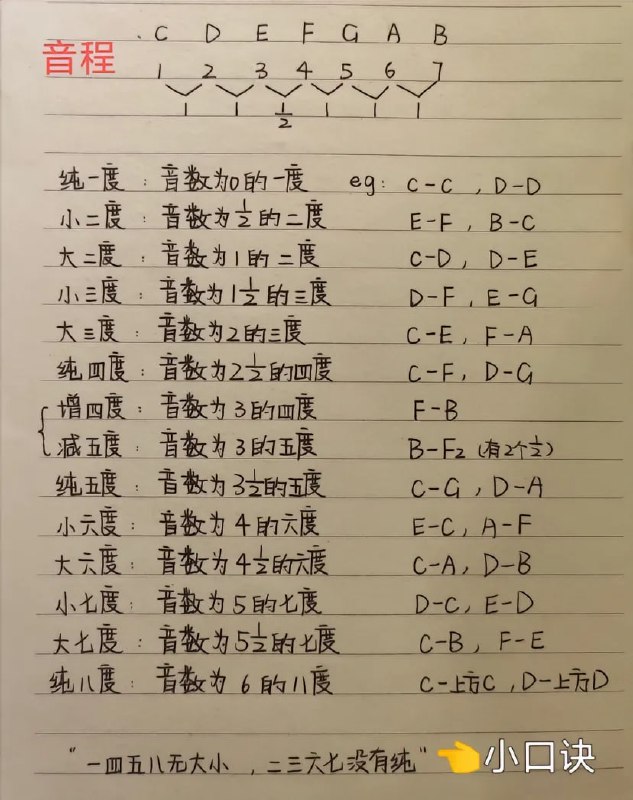 C D E F G A B
音程
1 2 3 4 5 6 7
1 1 1/2 1 1 1
纯一度：音数为0的一度 eg: C-C，D-D
小二度：音数为1/2的二度 E-F，B-C
大二度：音数为1的二度 C-D，D-E
小三度：音数为1 1/2的三度 D-F，E-G
大三度：音数为2的三度 C-E，F-A
纯四度：音数为2 1/2的四度 C-F，D-G
增四度：音数为3的四度 F-B
减五度：音数为3的五度 B-F2（有2个1/2）
纯五度：音数为3 1/2的五度 C-G，D-A
小六度：音数为4的六度 E-C，A-F
大六度：音数为4 1/2的六度 C-A，D-B
小七度：音数为5的七度 D-C，E-D
大七度：音数为5 1/2的七度 C-B，F-E
纯八度：音数为6的八度 C-上方C，D-上方D
"一四五八无大小，二三六七没有纯" 👈小口诀